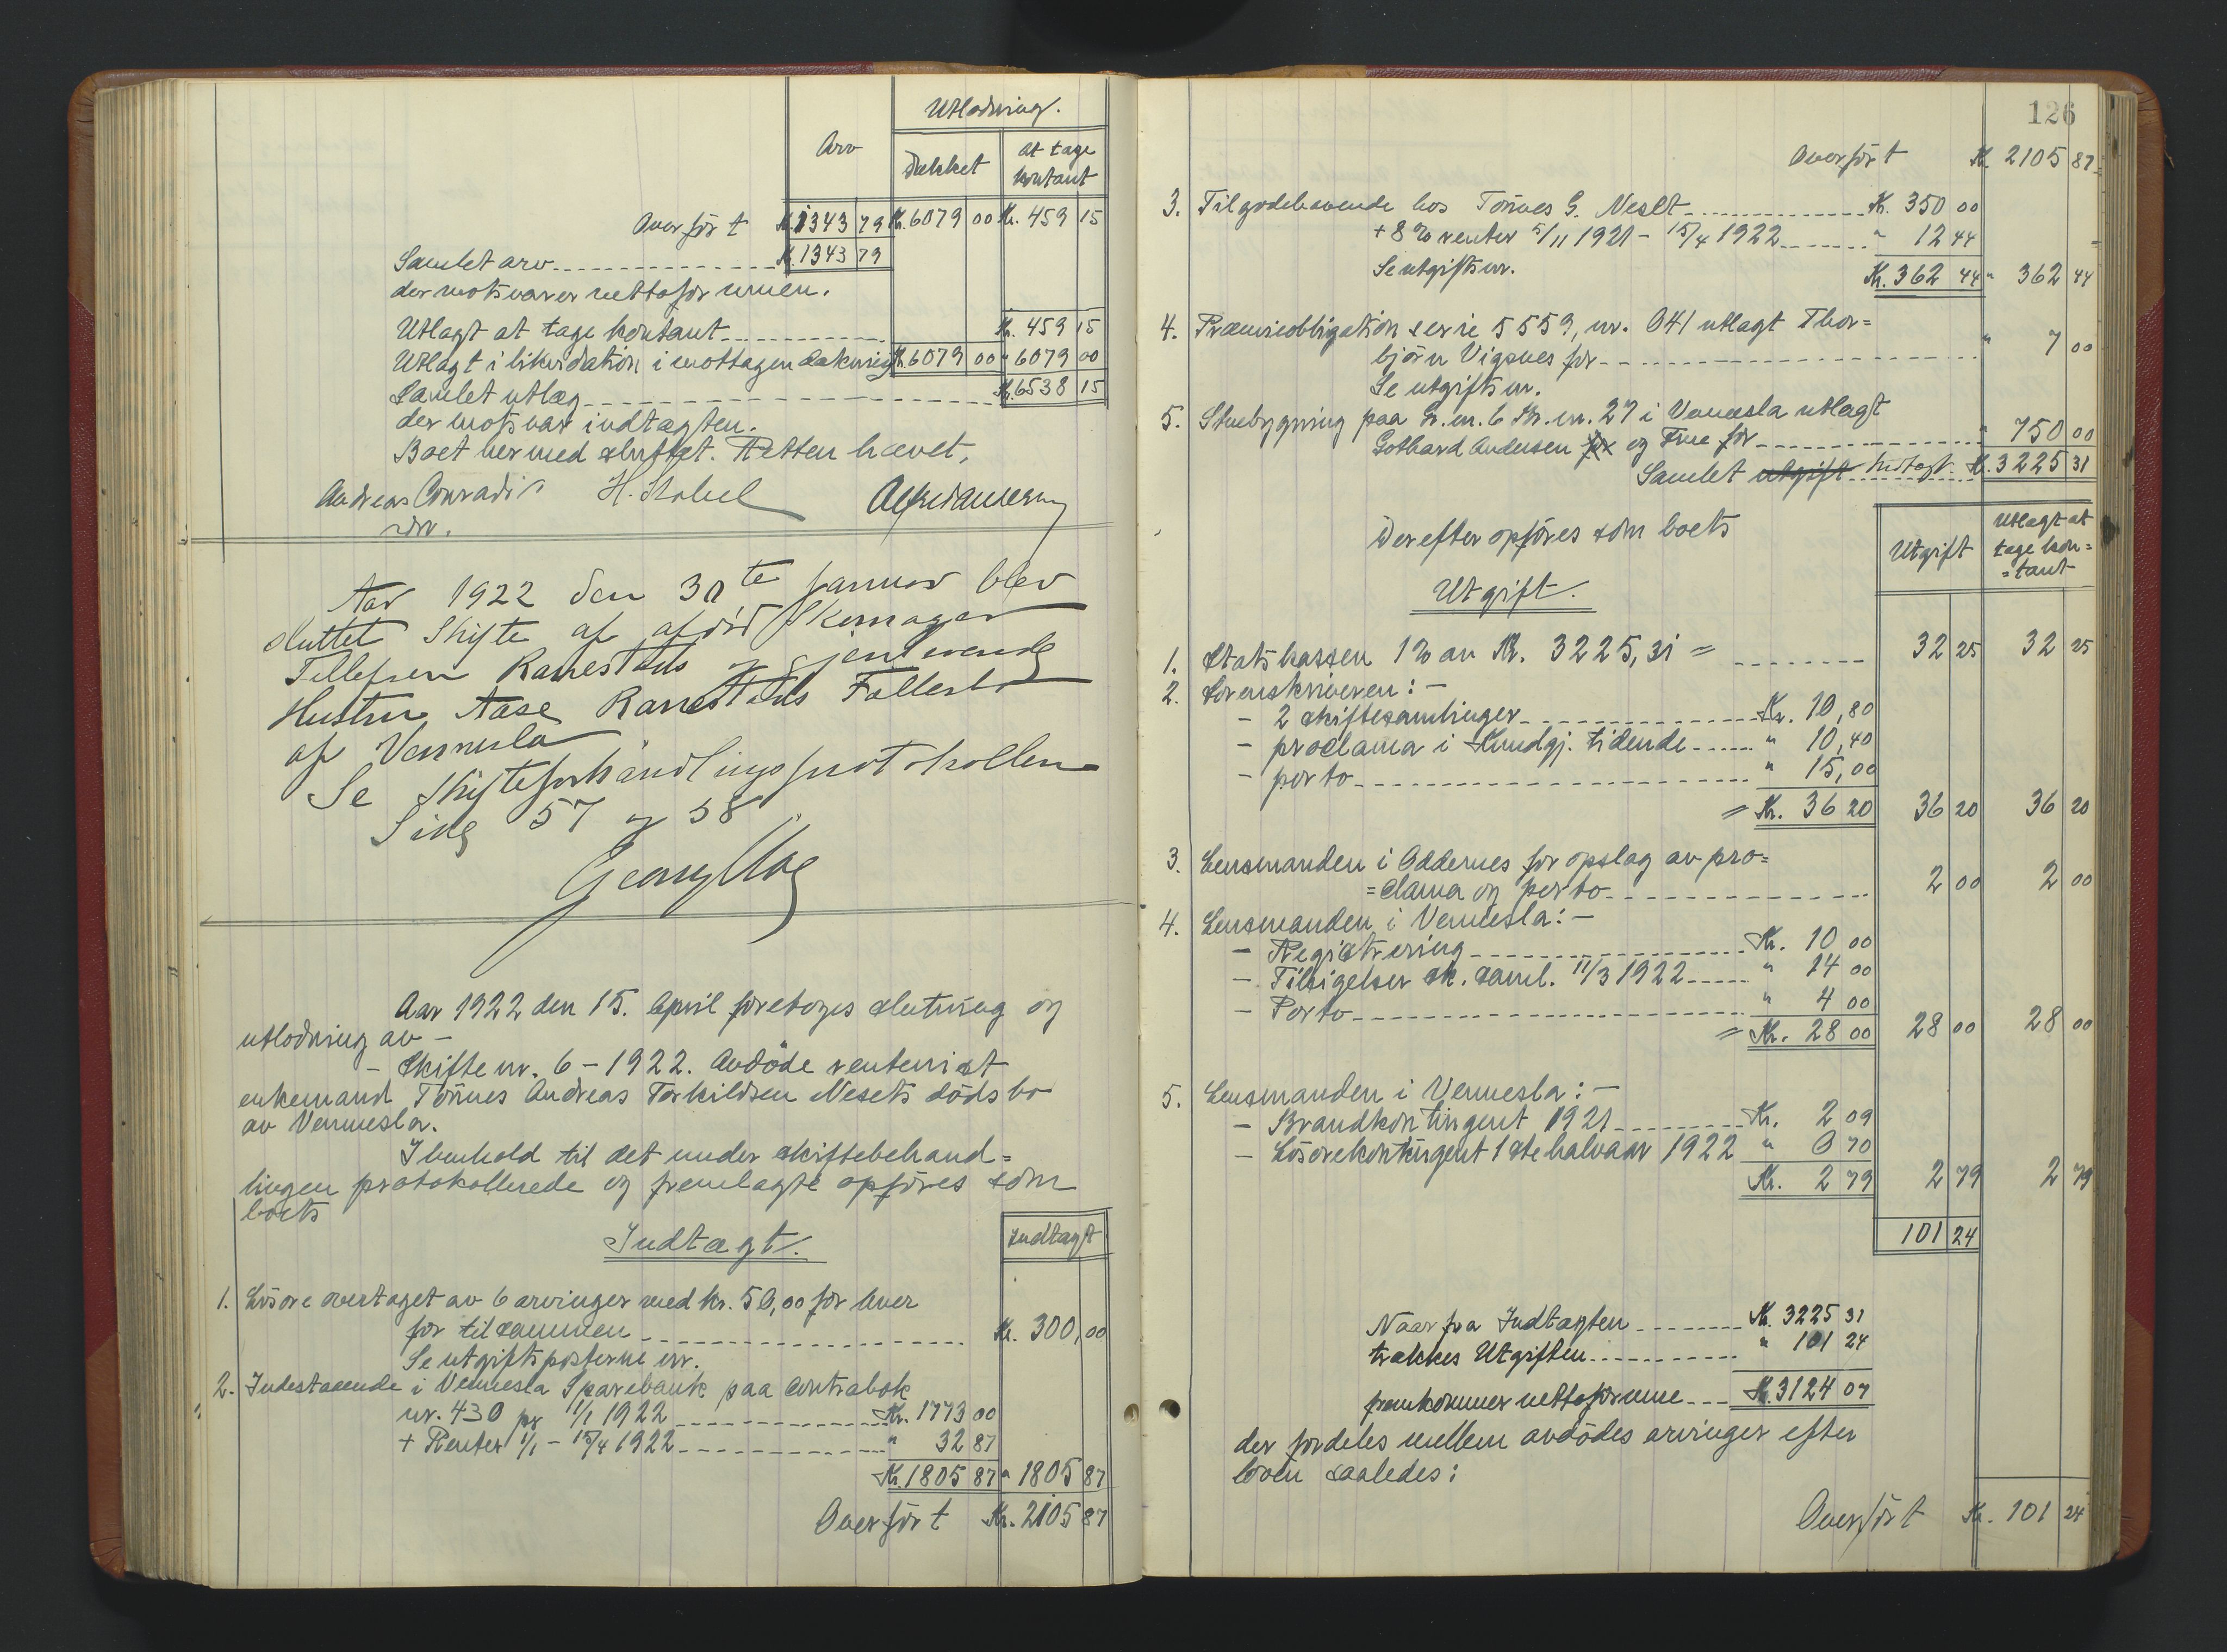 Utlodning.
Arv
Dækket
At tage
kontant
Overført K. 1343 79 K. 6079 00 Kr. 459 15
Samlet arv K. 1343 79
der motsvarer nettoformuen.
Utlagt at tage kontant K. 459 15
Utlagt i likvidation i mottagen dækning K. 6079 00 " 6079 00
Samlet utlæg K. 6538 15
der motsvar indtægten.
Boet hermed sluttet. Retten hævet.
Andreas Conradi H. Stabel
Aar 1922 den 30te Januar blev
sluttet Skifte af afdød Skomager
Tellefsen Ravnestads og gjenlevende
Hustru Aase Ravnestads Fællesbo
af Vennesla
Se Skifteforhandlingsprotokollen
Side 57 og 58
Georg Moe
Aar 1922 den 15. April foretoges slutning og
utlodning av –
– Skifte nr. 6 – 1922. Avdöde rentenist
enkemand Tönnes Andreas Torkildsen Nesets dödsbo
av Vennesla.
I henhold til det under skiftebehand=
lingen protokollerede og fremlagte opföres som
boets
Indtægt.
Indtægt
1. Lösöre overtaget av 6 arvinger med kr. 50,00 for hver
for tilsammen Kr. 300,00
Se utgiftsposterne nr.
2. Indestaaende i Vennesla Sparebank paa contrabok
nr. 430 pr 1/1 1922 Kr. 1773 00
+ Renter 1/1 – 15/4 1922 " 32 87
Kr. 1805 87 " 1805 87
Overført Kr. 2105 87
126
Overført K. 2105 87
3. Tilgodehavende hos Tönnes G. Neset K. 350 00
+ 8% renter 5/11 1921 – 15/4 1922 " 12 44
Se utgiftsnr. Kr. 362 44 " 362 44
4. Præmieobligation serie 5559, nr. 041 utlagt Thor=
björn Vigsnes for " 7 00
Se utgiftsnr.
5. Stuebygning paa G. nr. 6 Br. nr. 27 i Vennesla utlagt
Gothard Andersen for og Frue for " 750 00
Samlet utgift Indtægt K. 3225 31
Derefter opföres som boets
Utgift
Utlagt at
tage kon=
=tant
Utgift.
1. Statskassen 1% av Kr. 3225,31 = 32 25 32 25
2. Sorenskriveren: –
– 2 skiftesamlinger Kr. 10,80
– proclama i Kundgj. tidende " 10,40
– porto " 15,00
= Kr. 36 20 36 20 36 20
3. Lensmanden i Oddernes for opslag av pro=
=clama og porto 2 00 2 00
4. Lensmanden i Vennesla: –
– Registrering Kr. 10 00
– Tilsigelser sk. saml. 11/3 1922 " 14 00
– Porto " 4 00
= Kr. 28 00 28 00 28 00
5. Lensmanden i Vennesla: –
– Brandkontingent 1921 Kr. 2 09
– Lösörekontingent 1ste halvaar 1922 " 0 70
Kr. 2 79 2 79 2 79
101 24
Naar fra Indtægten K. 3225 31
trækkes Utgiften " 101 24
fremkommer nettoformue K. 3124 07
der fordeles mellem avdödes arvinger efter
loven saaledes:
Overført K. 101 24